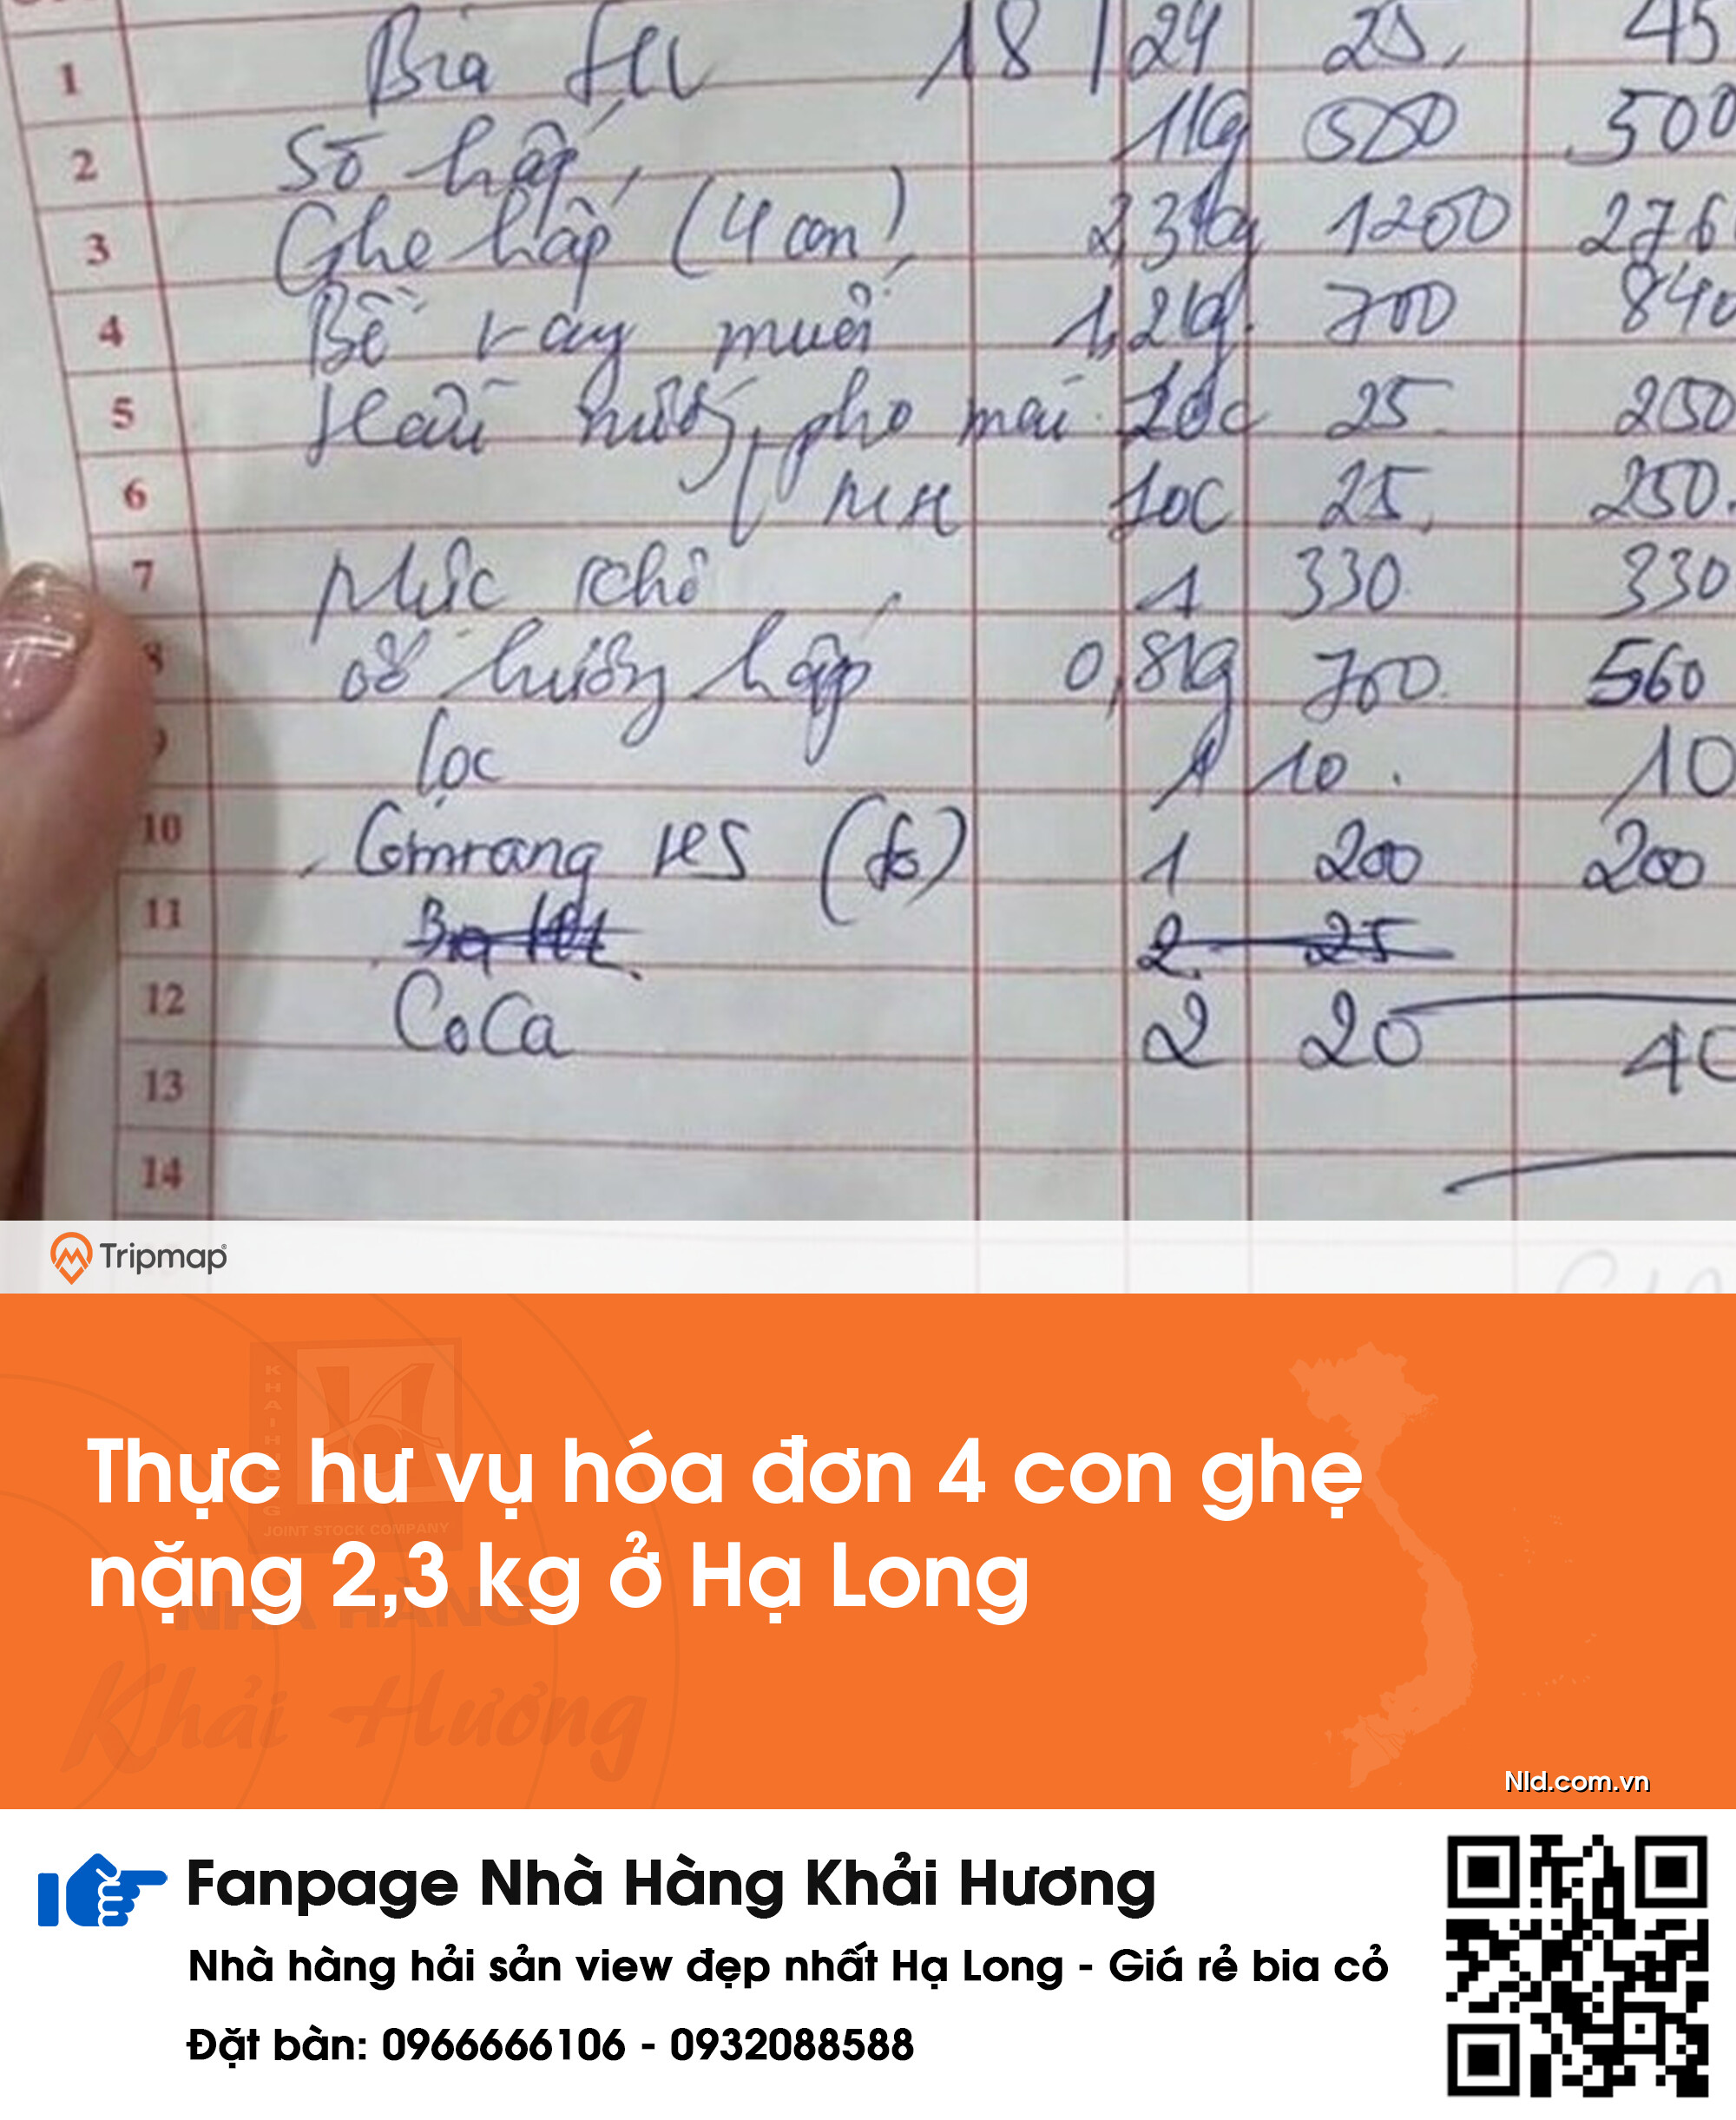 1 Bia HN 18 | 24 25, 45
2 Sò hấp 1kg 500 500
3 Ghẹ hấp (4 con) 2,3kg 1200 276
4 Bề rang muối 1,2kg. 700 840
5 Hàu nướng pho mai 10c 25. 250
6 MH 10c 25, 250.
7 Mực khô 1 330 330
8 ốc hương hấp 0,8kg 700. 560
9 lọc 1 10. 10
10 Cơm rang HS (to) 1 200 200
11 2 25
12 CoCa 2 20 40
13
14
Tripmap
KHAI HUONG
JOINT STOCK COMPANY
Thực hư vụ hóa đơn 4 con ghẹ
nặng 2,3 kg ở Hạ Long
NHÀ HÀNG
Khải Hương
Nld.com.vn
Fanpage Nhà Hàng Khải Hương
Nhà hàng hải sản view đẹp nhất Hạ Long - Giá rẻ bia cỏ
Đặt bàn: 0966666106 - 0932088588